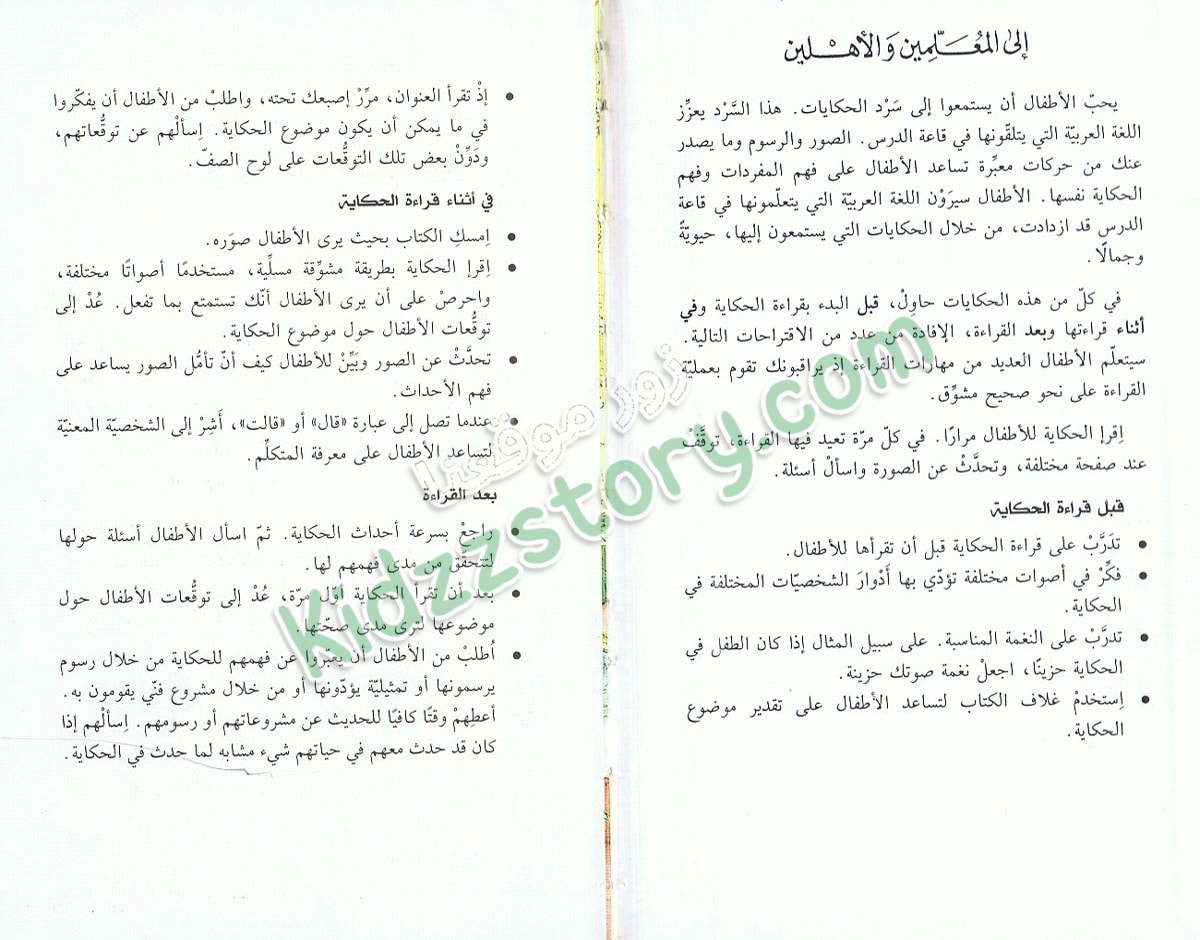 إلى المُعَلِّمِين وَالأهْلين
يحبّ الأطفال أن يستمعوا إلى سَرْد الحكايات. هذا السَّرْد يعزِّز
اللغة العربيّة التي يتلقّونها في قاعة الدرس. الصور والرسوم وما يصدر
عنك من حركات معبِّرة تساعد الأطفال على فهم المفردات وفهم
الحكاية نفسها. الأطفال سيرَوْن اللغة العربيّة التي يتعلّمونها في قاعة
الدرس قد ازدادت، من خلال الحكايات التي يستمعون إليها، حيويّةً
وجمالًا.
في كلّ من هذه الحكايات حاوِلْ، قبل البدء بقراءة الحكاية وفي
أثناء قراءتها وبعد القراءة، الإفادة من عدد من الاقتراحات التالية.
سيتعلّم الأطفال العديد من مهارات القراءة إذ يراقبونك تقوم بعمليّة
القراءة على نحو صحيح مشوِّق.
اِقرإ الحكاية للأطفال مرارًا. في كلّ مرّة تعيد فيها القراءة، توقَّفْ
عند صفحة مختلفة، وتحدَّثْ عن الصورة واسألْ أسئلة.
قبل قراءة الحكاية
• تدَرَّبْ على قراءة الحكاية قبل أن تقرأها للأطفال.
• فكِّرْ في أصوات مختلفة تؤدّي بها أدْوارَ الشخصيّات المختلفة في
الحكاية.
• تدرَّبْ على النغمة المناسبة. على سبيل المثال إذا كان الطفل في
الحكاية حزينًا، اجعلْ نغمة صوتك حزينة.
• اِستخدمْ غلاف الكتاب لتساعد الأطفال على تقدير موضوع
الحكاية.
• إذْ تقرأ العنوان، مرِّرْ إصبعك تحته، واطلبْ من الأطفال أن يفكّروا
في ما يمكن أن يكون موضوع الحكاية. اِسألْهم عن توقُّعاتهم،
ودَوِّنْ بعض تلك التوقُّعات على لوح الصفّ.
في أثناء قراءة الحكاية
• اِمسكِ الكتاب بحيث يرى الأطفال صوَره.
• اِقرإ الحكاية بطريقة مشوِّقة مسلِّية، مستخدمًا أصواتًا مختلفة،
واحرصْ على أن يرى الأطفال أنّك تستمتع بما تفعل. عُدْ إلى
توقُّعات الأطفال حول موضوع الحكاية.
• تحدَّثْ عن الصور وبَيِّنْ للأطفال كيف أنّ تأمُّل الصور يساعد على
فهم الأحداث.
• عندما تصل إلى عبارة «قال» أو «قالت»، أَشِرْ إلى الشخصيّة المعنيّة
لتساعد الأطفال على معرفة المتكلِّم.
بعد القراءة
• راجعْ بسرعة أحداث الحكاية. ثمّ اسأل الأطفال أسئلة حولها
لتتحقَّق من مدى فهمهم لها.
• بعد أن تقرأ الحكاية أوّل مرّة، عُدْ إلى توقُّعات الأطفال حول
موضوعها لترى مدى صحّتها.
• اُطلبْ من الأطفال أن يعبّروا عن فهمهم للحكاية من خلال رسوم
يرسمونها أو تمثيليّة يؤدّونها أو من خلال مشروع فنّي يقومون به.
أعطِهمْ وقتًا كافيًا للحديث عن مشروعاتهم أو رسومهم. اِسألْهم إذا
كان قد حدث معهم في حياتهم شيء مشابه لما حدث في الحكاية.
زوروا موقعنا
Kidzzstory.com